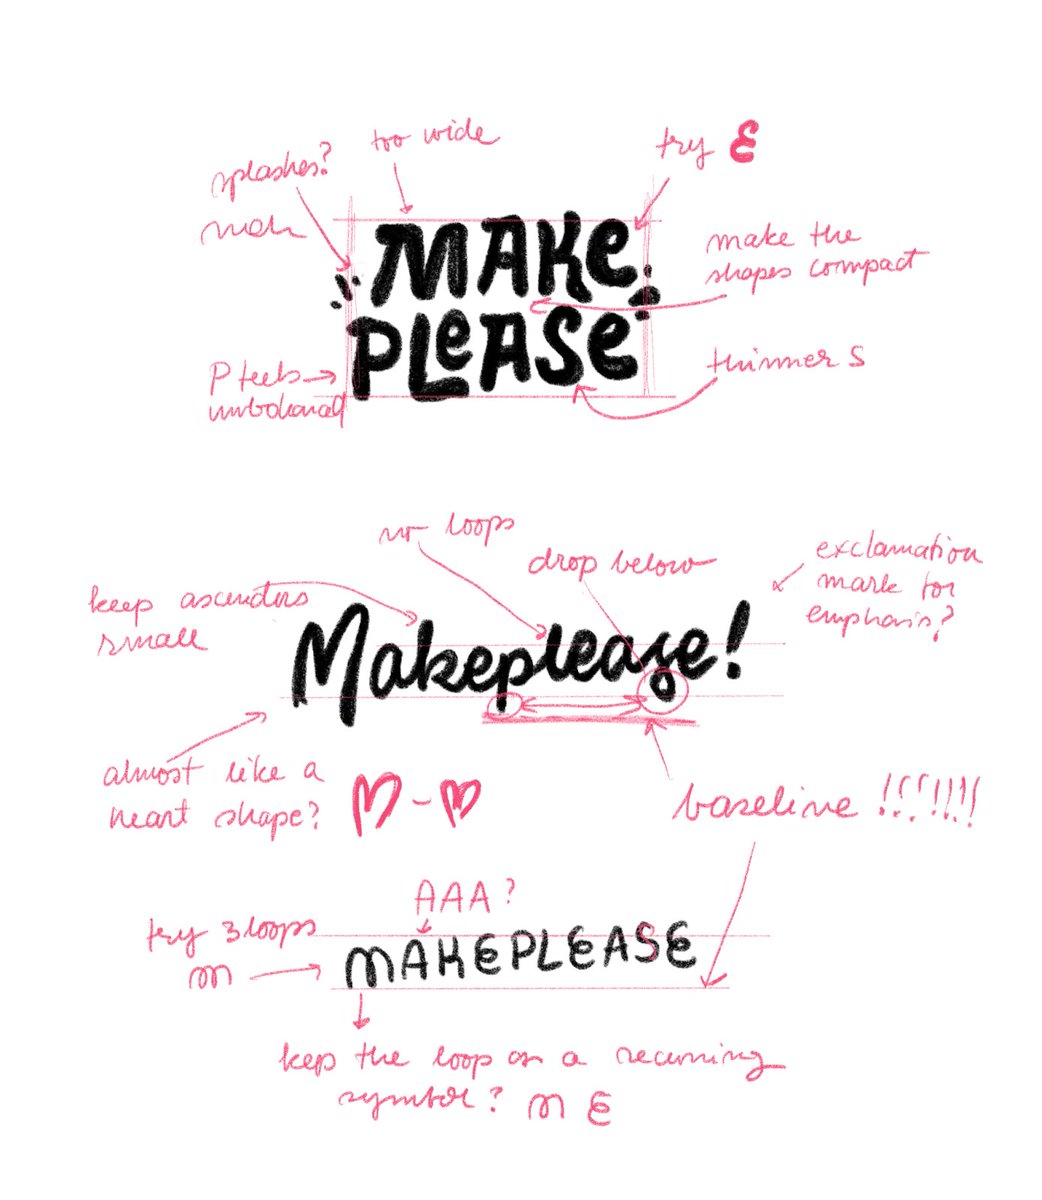 too wide
try E
splashes?
MAKE
make the
shapes compact
PLEASE
P feels
thinner S
no loops
drop below
exclamation
mark for
emphasis?
keep ascendors
small
Makeplease!
almost like a
heart shape?
baseline !!!!!!!!
AAA?
try 3 loops
m
MAKEPLEASE
kep the loop as a recurring
symbol? m E